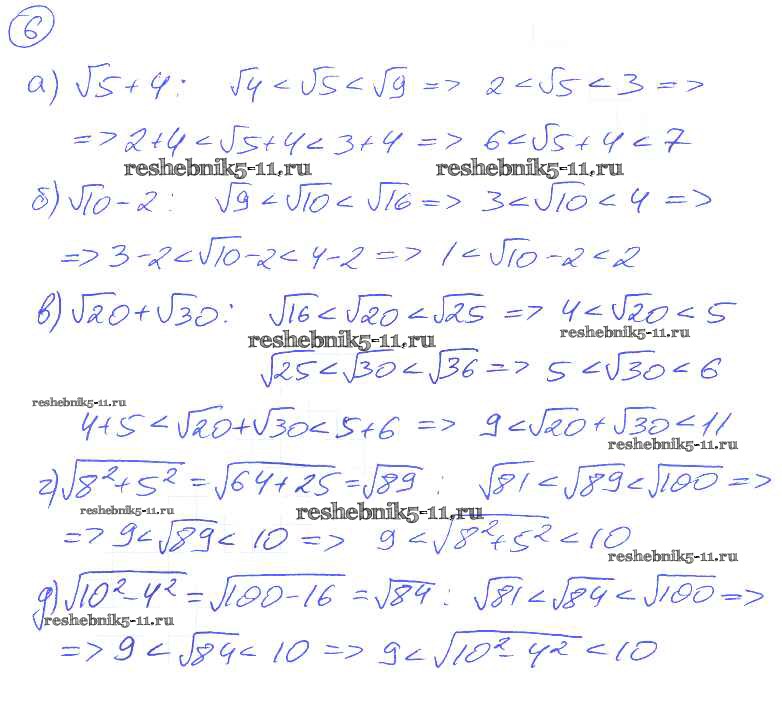 6
а) √5+4: √4 < √5 < √9 => 2 < √5 < 3 =>
=> 2+4 < √5+4 < 3+4 => 6 < √5+4 < 7
reshebnik5-11.ru reshebnik5-11.ru
б) √10-2: √9 < √10 < √16 => 3 < √10 < 4 =>
=> 3-2 < √10-2 < 4-2 => 1 < √10-2 < 2
в) √20+√30: √16 < √20 < √25 => 4 < √20 < 5
reshebnik5-11.ru reshebnik5-11.ru
√25 < √30 < √36 => 5 < √30 < 6
reshebnik5-11.ru
4+5 < √20+√30 < 5+6 => 9 < √20+√30 < 11
reshebnik5-11.ru
г) √8²+5² = √64+25 = √89: √81 < √89 < √100 =>
reshebnik5-11.ru reshebnik5-11.ru
=> 9 < √89 < 10 => 9 < √8²+5² < 10
reshebnik5-11.ru
д) √10²-4² = √100-16 = √84: √81 < √84 < √100 =>
reshebnik5-11.ru
=> 9 < √84 < 10 => 9 < √10²-4² < 10